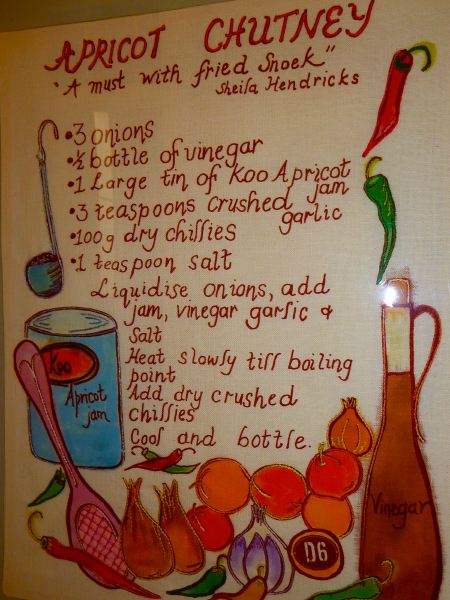 APRICOT CHUTNEY
"A must with fried Snoek"
Sheila Hendricks
•3 onions
•½ bottle of vinegar
•1 Large tin of Koo Apricot
jam
•3 teaspoons crushed
garlic
•100g dry chillies
•1 teaspoon salt
Liquidise onions, add
jam, vinegar garlic &
salt
Heat slowly till boiling
point
Add dry crushed
chillies
Cool and bottle.
Koo
Apricot
jam
Vinegar
D6